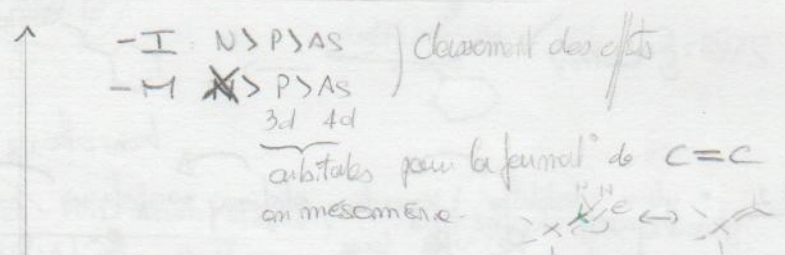 -I N > P > AS ) Classement des effets
-M N > P > AS
3d 4d
orbitales pour la format° de C=C
en mésomérie.